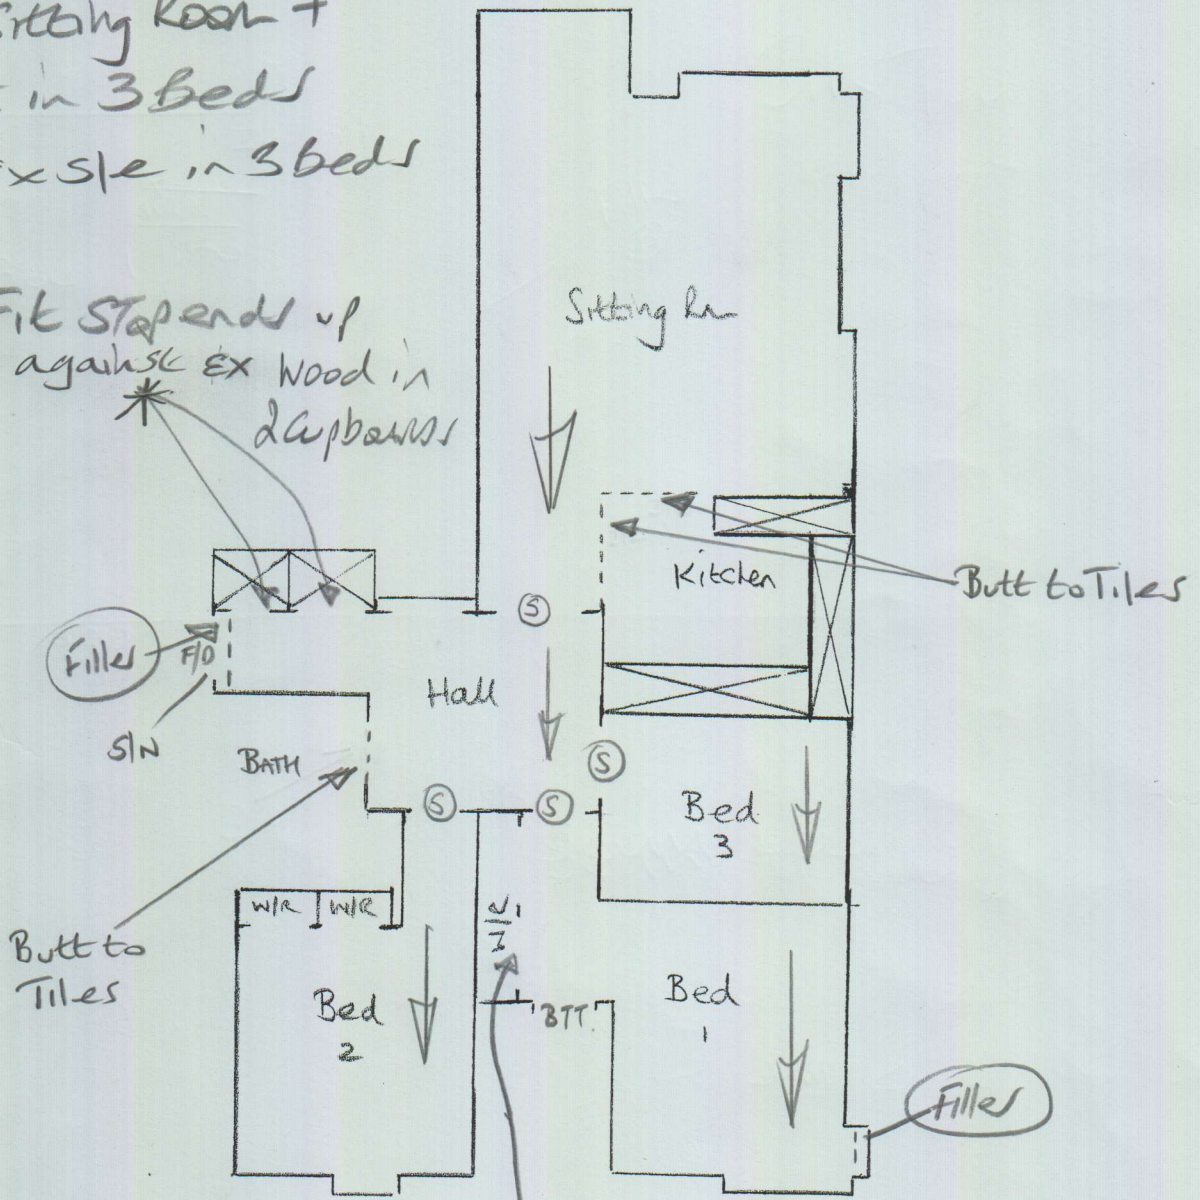 Sitting Room +
in 3 Beds
Ex S/e in 3 Beds
Fit Stopends up
against Ex Wood in
2 Cupboards
Sitting Rm
Kitchen
Butt to Tiles
S
Filler
F/D
Hall
S/N
BATH
S
S
S
Bed
3
W/R
W/R
W/R
Butt to
Tiles
Bed
2
BTT.
Bed
1
Filler